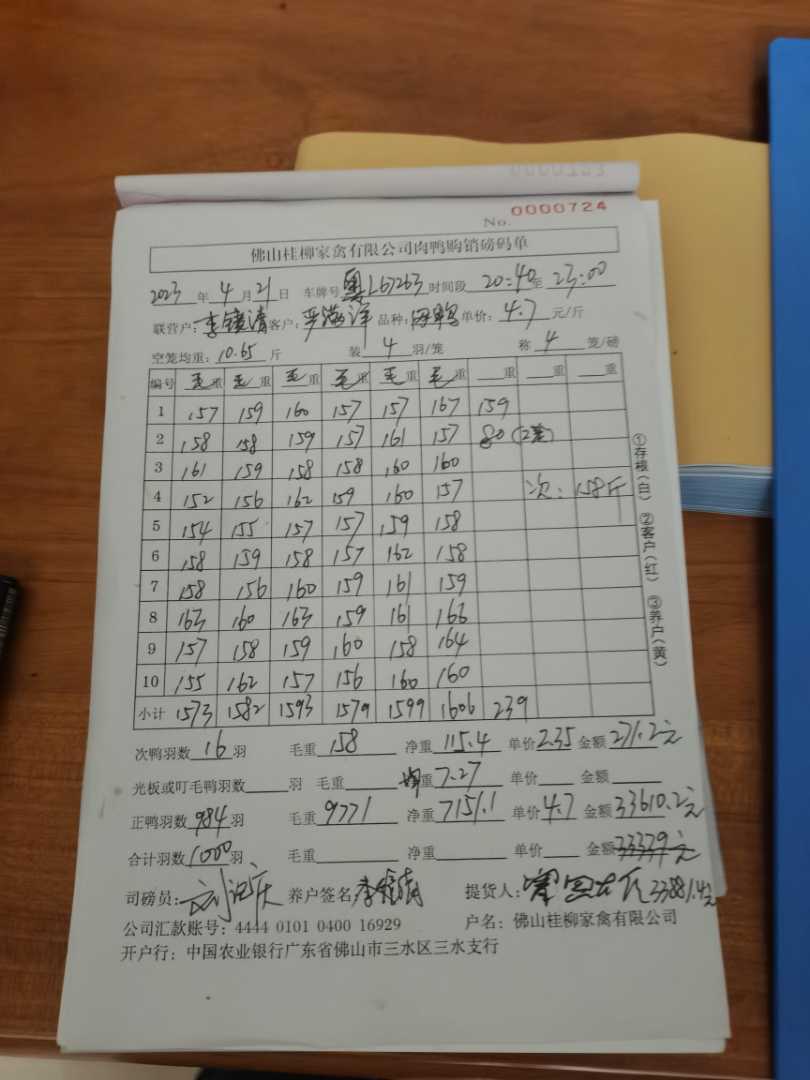 No. 0000724
佛山桂柳家禽有限公司肉鸭购销磅码单
2023年4月21日 车牌号粤L67263时间段20:40至23:00
联营户:李镜清客户:品种:单价:4.7元/斤
空笼均重:10.65斤 装4羽/笼 称4笼/磅
编号 毛重 毛重 毛重 毛重 毛重 毛重 重 重 重
1 157 159 160 157 157 167 159
2 158 158 159 157 161 157 80(2笼)
3 161 159 158 158 160 160
4 152 156 162 159 160 157 次:158斤
5 154 155 157 157 159 158
6 158 159 158 157 162 158
7 158 156 160 159 161 159
8 163 160 163 159 161 166
9 157 158 159 160 158 164
10 155 162 157 156 160 160
小计 1573 1582 1593 1579 1599 1606 239
①存根(白) ②客户(红) ③养户(黄)
次鸭羽数16羽 毛重158 净重115.4 单价2.35 金额271.2元
光板或叮毛鸭羽数羽 毛重 均重7.27 单价 金额
正鸭羽数984羽 毛重9771 净重7151.1 单价4.7 金额33610.2元
合计羽数1000羽 毛重 净重 单价 金额33339元
司磅员: 养户签名:李镜清 提货人: 33881.4元
公司汇款账号:4444 0101 0400 16929 户名:佛山桂柳家禽有限公司
开户行:中国农业银行广东省佛山市三水区三水支行